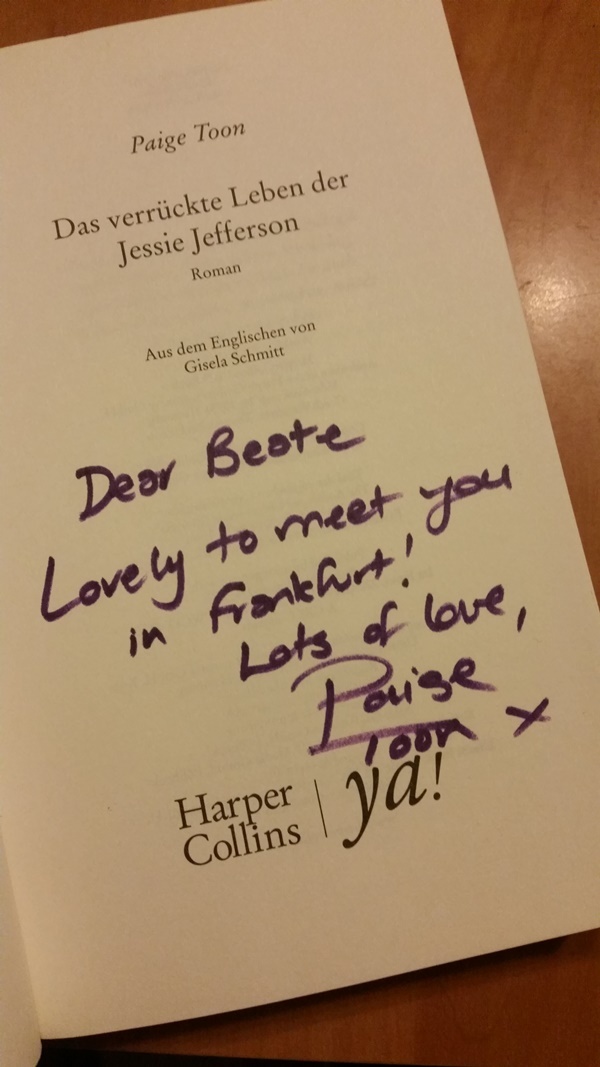 Paige Toon
Das verrückte Leben der
Jessie Jefferson
Roman
Aus dem Englischen von
Gisela Schmitt
Dear Beate
Lovely to meet you
in Frankfurt!
Lots of love,
Paige
Toon x
Harper
Collins
ya!